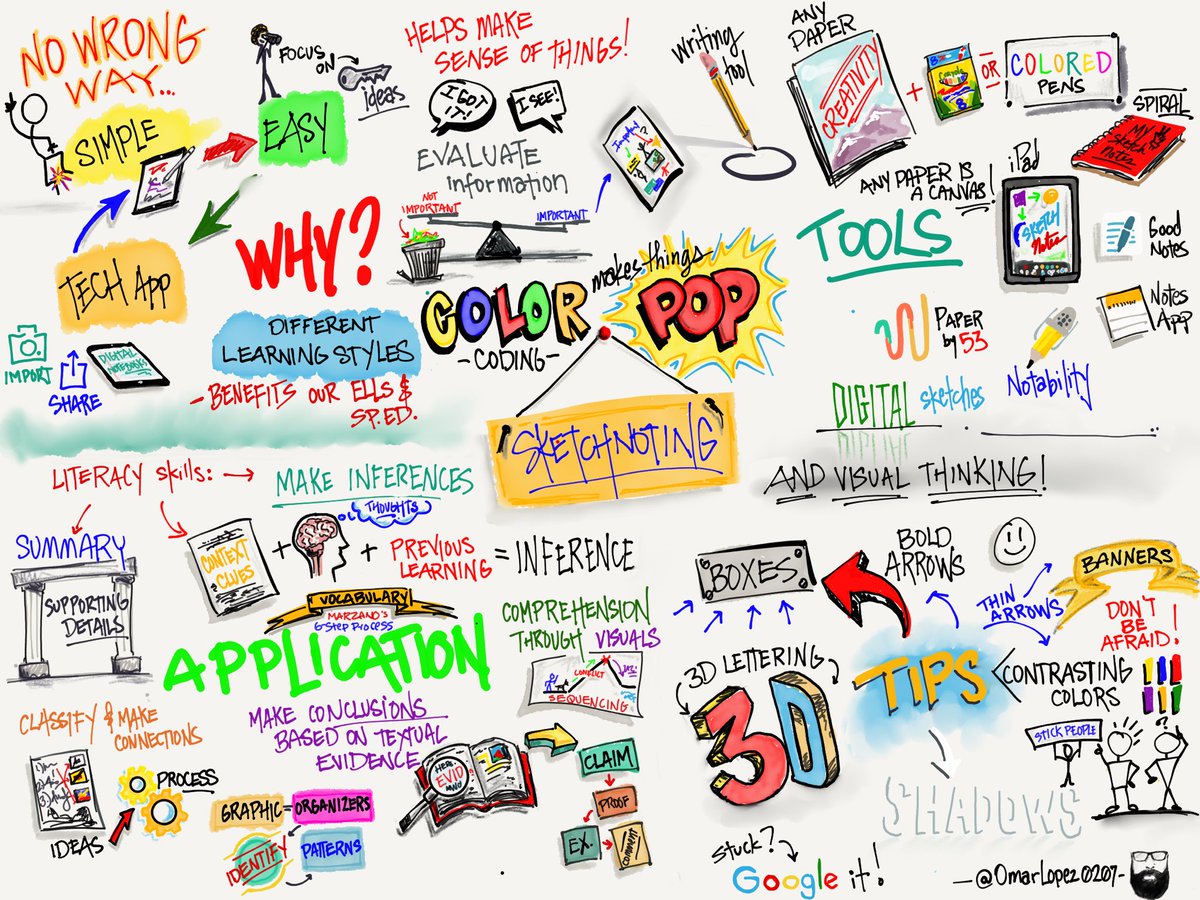 NO WRONG
WAY...
SIMPLE
FOCUS
ON
ideas
EASY
TECH App
IMPORT
SHARE
DIGITAL
NOTEBOOKS
WHY?
DIFFERENT
LEARNING STYLES
- BENEFITS OUR ELLS &
SP.ED.
HELPS MAKE
SENSE OF THINGS!
I GOT
IT!
I SEE!
EVALUATE
information
NOT
IMPORTANT
IMPORTANT
Important
writing
tool
COLOR
- CODING -
makes things
POP
SKETCHNOTING
AND VISUAL THINKING!
ANY
PAPER
CREATIVITY
+
Crayola
8
OR
COLORED
PENS
SPIRAL
MY
Sketch
Notes
ANY PAPER IS
A CANVAS!
TOOLS
iPad
SKETCH
Notes
Good
Notes
Notes
App
PAPER
by 53
Notability
DIGITAL sketches
LITERACY skills: →
MAKE INFERENCES
THOUGHTS
SUMMARY
SUPPORTING
DETAILS
CONTEXT
CLUES
+
+ PREVIOUS
LEARNING
= INFERENCE
VOCABULARY
MARZANO'S
6-STEP PROCESS
APPLICATION
COMPREHENSION
THROUGH VISUALS
CONFLICT
SEQUENCING
CLASSIFY & MAKE
CONNECTIONS
IDEAS
PROCESS
MAKE CONCLUSIONS
BASED ON TEXTUAL
EVIDENCE
GRAPHIC = ORGANIZERS
IDENTIFY
PATTERNS
HERE
EVID
CLAIM
PROOF
EX.
comment
BOXES
BOLD
ARROWS
THIN
ARROWS
BANNERS
DON'T
BE
AFRAID!
3D LETTERING
3D
TIPS
CONTRASTING
COLORS
STICK PEOPLE
SHADOWS
stuck?
Google it!
- @OmarLopez0207 -